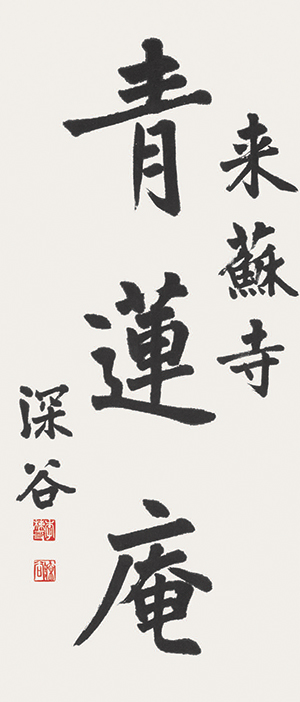 来蘇寺
青蓮庵
深谷